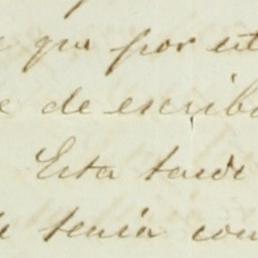 que por est
de escribi
Esta tarde
tenía con